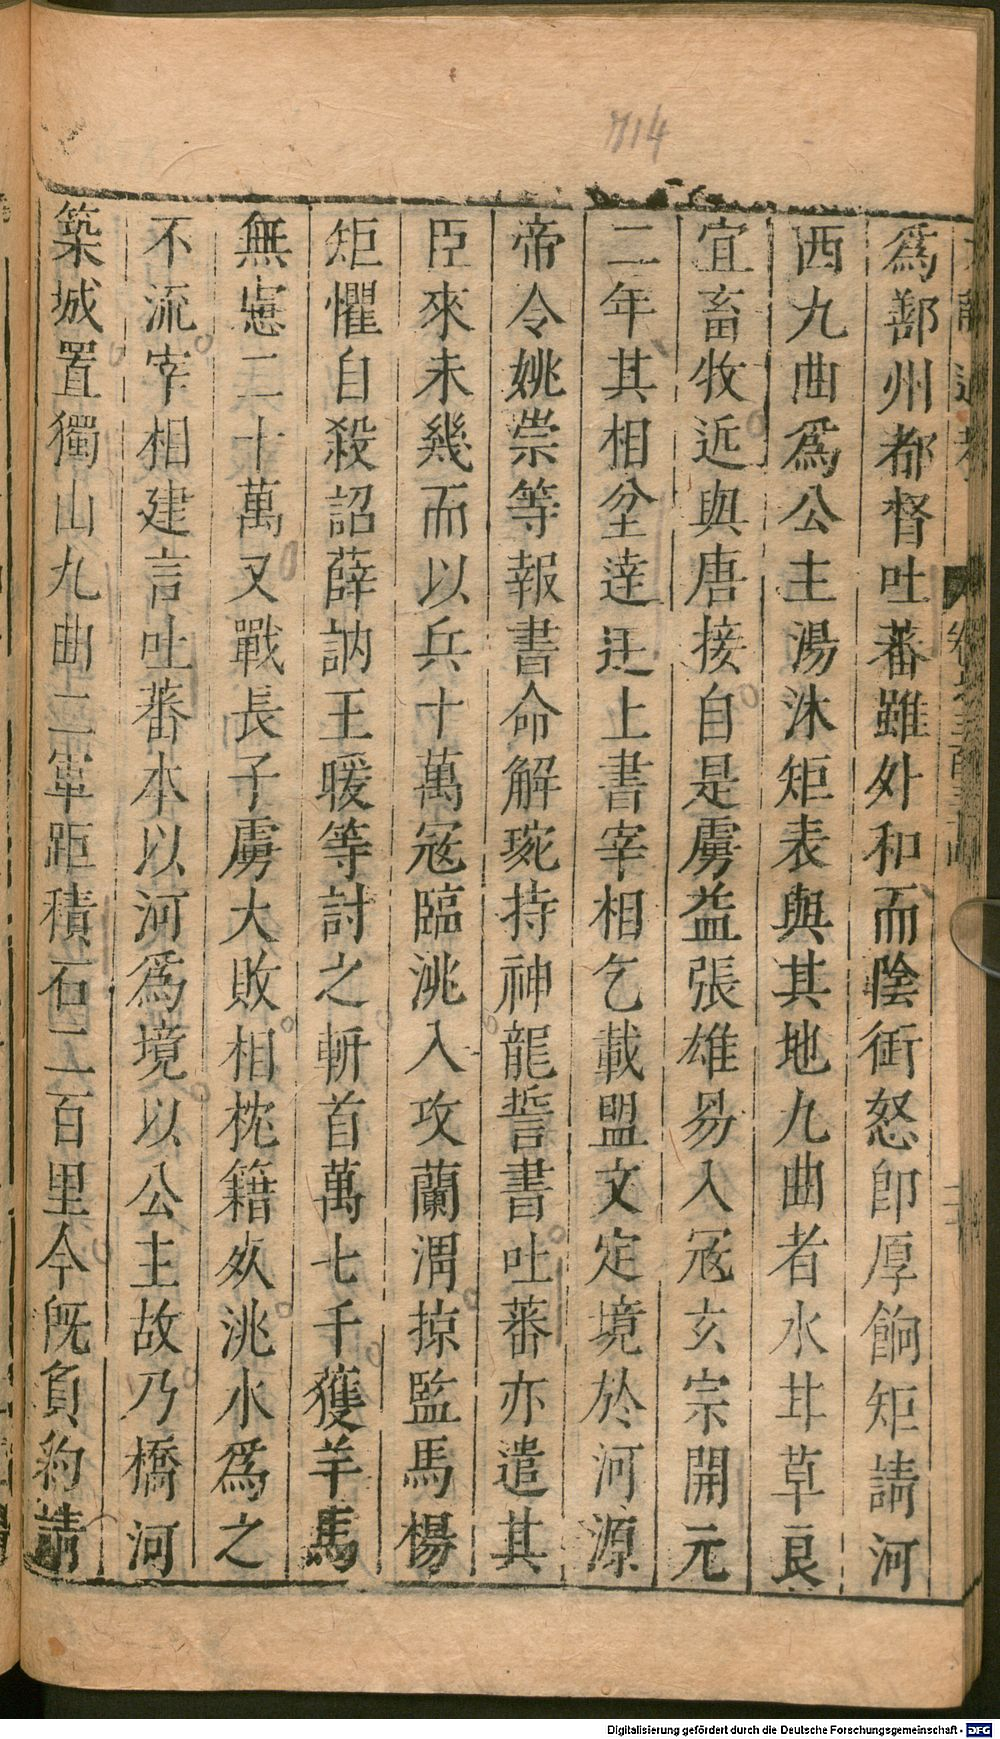 714
爲鄯州都督吐蕃雖外和而陰銜怒卽厚餉矩請河
西九曲爲公主湯沐矩表與其地九曲者水甘草良
宜畜牧近與唐接自是虜益張雄易入寇玄宗開元
二年其相坌達延上書宰相乞載盟文定境於河源
帝令姚崇等報書命解琬持神龍誓書吐蕃亦遣其
臣來未幾而以兵十萬寇臨洮入攻蘭渭掠監馬楊
矩懼自殺詔薛訥王晙等討之斬首萬七千獲羊馬
無慮二十萬又戰長子虜大敗相枕籍死洮水爲之
不流宰相建言吐蕃本以河爲境以公主故乃橋河
築城置獨山九曲二軍距積石二百里今既負約請
Digitalisierung gefördert durch die Deutsche Forschungsgemeinschaft - DFG